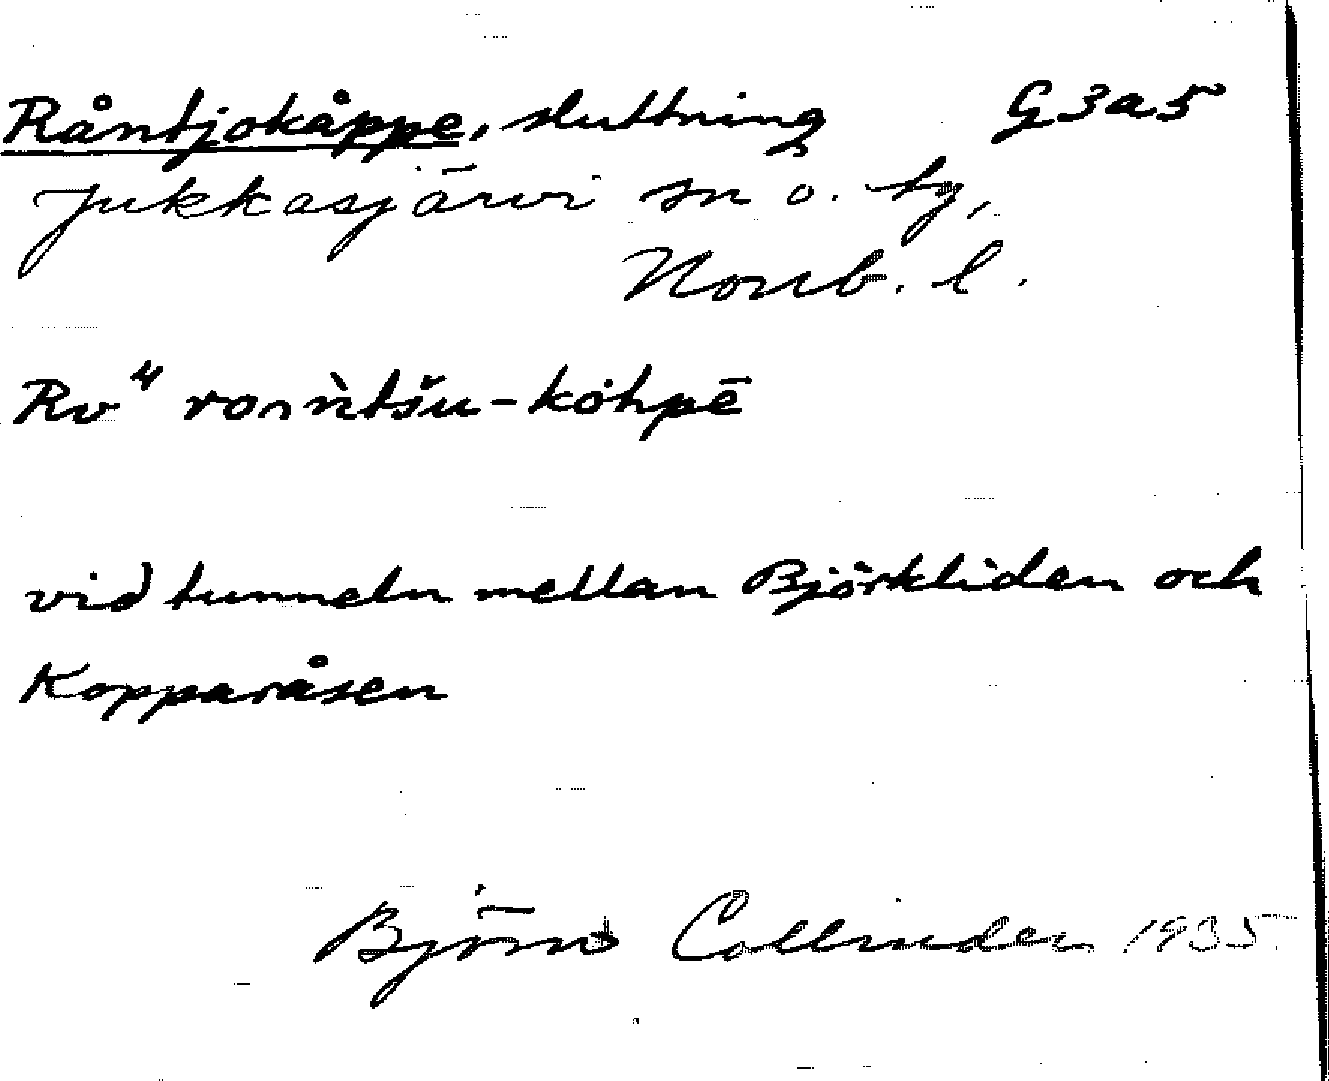 Råntjokåppe, sluttning G3a5
Jukkasjärvi sn o. tg,
Norrb. l.
Rv⁴
vid tunneln mellan Björkliden och
Kopparåsen
Björn Collinder 1935